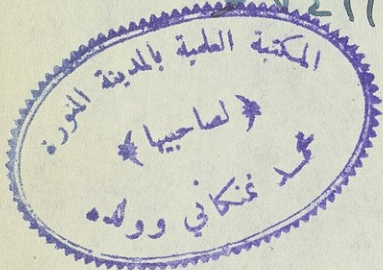 المكتبة العلمية بالمدينة المنورة
لصاحبيها
محمد نمنكاني وولده